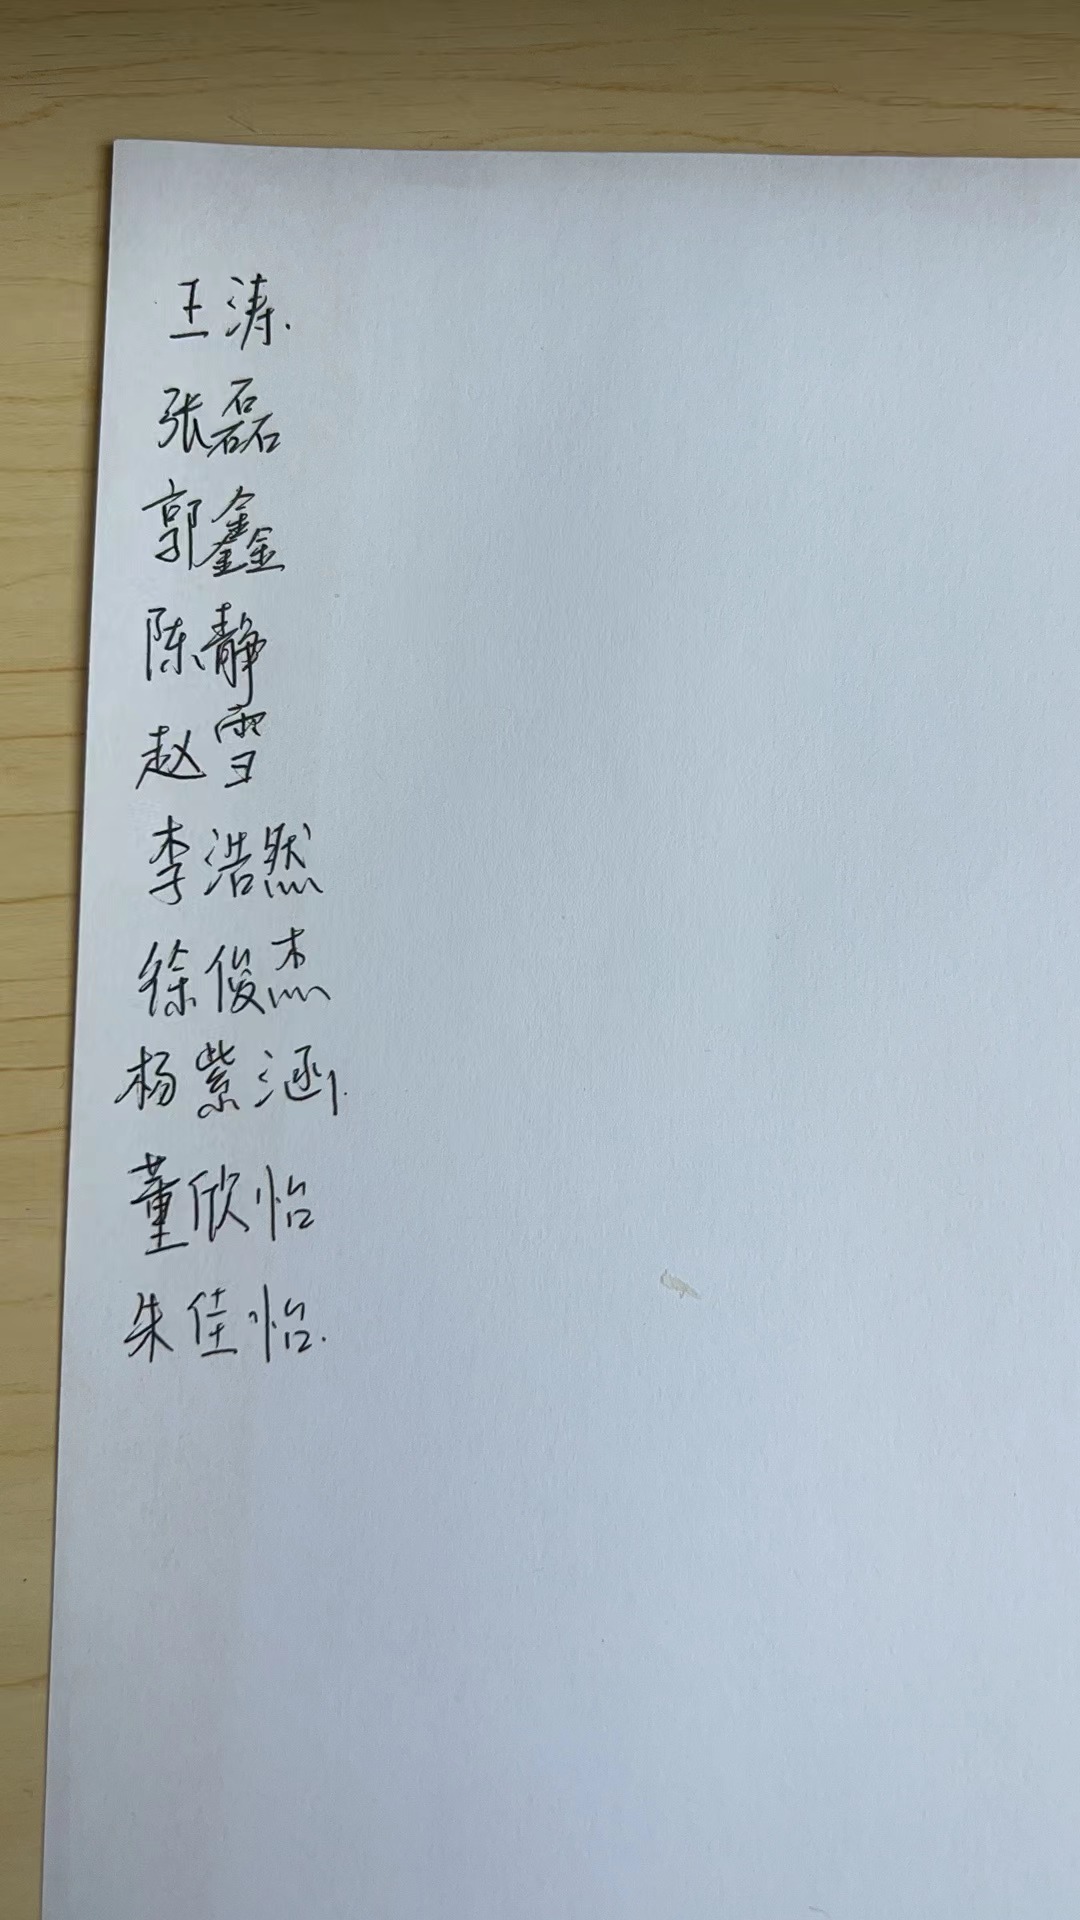 王涛.
张磊
郭鑫
陈静
赵雪
李浩然
徐俊杰
杨紫涵.
董欣怡
朱佳怡.